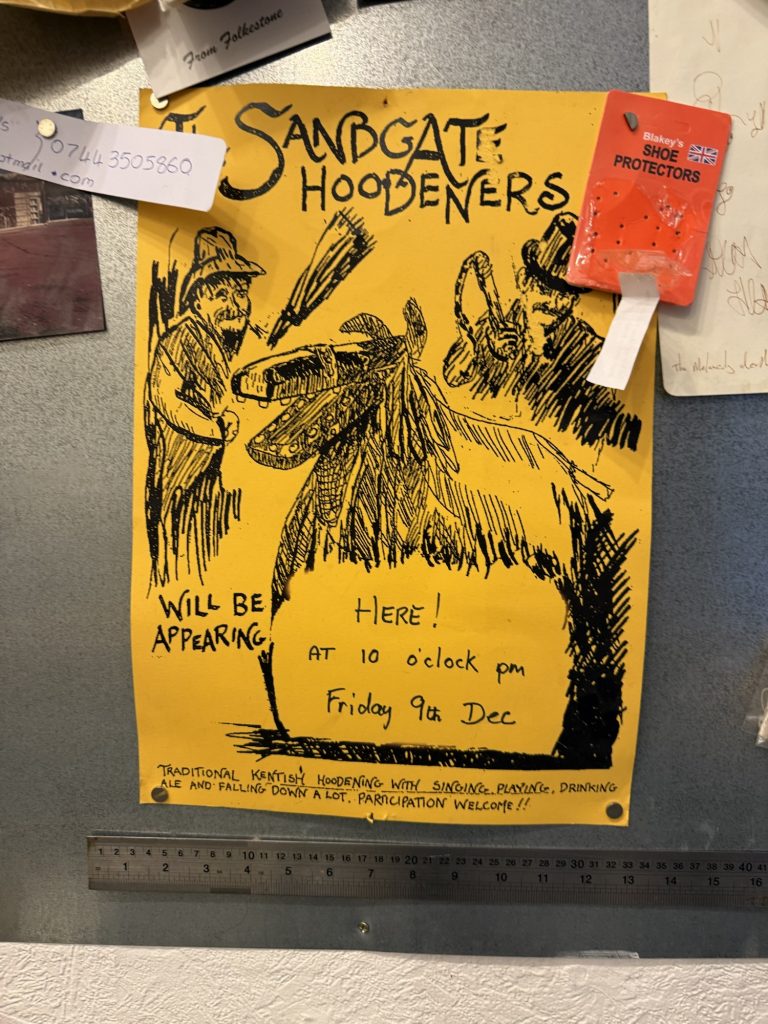 From Folkestone
07443505860
otmail.com
THE SANDGATE
HOODENERS
Blakey's
SHOE
PROTECTORS
WILL BE
APPEARING
HERE!
AT 10 o'clock pm
Friday 9th Dec
TRADITIONAL KENTISH HOODENING WITH SINGING, PLAYING, DRINKING
ALE AND FALLING DOWN A LOT. PARTICIPATION WELCOME!!
1 2 3 4 5 6 7 8 9 10 11 12 13 14 15 16 17 18 19 20 21 22 23 24 25 26 27 28 29 30 31 32 33 34 35 36 37 38 39 40 41
1 2 3 4 5 6 7 8 9 10 11 12 13 14 15 16